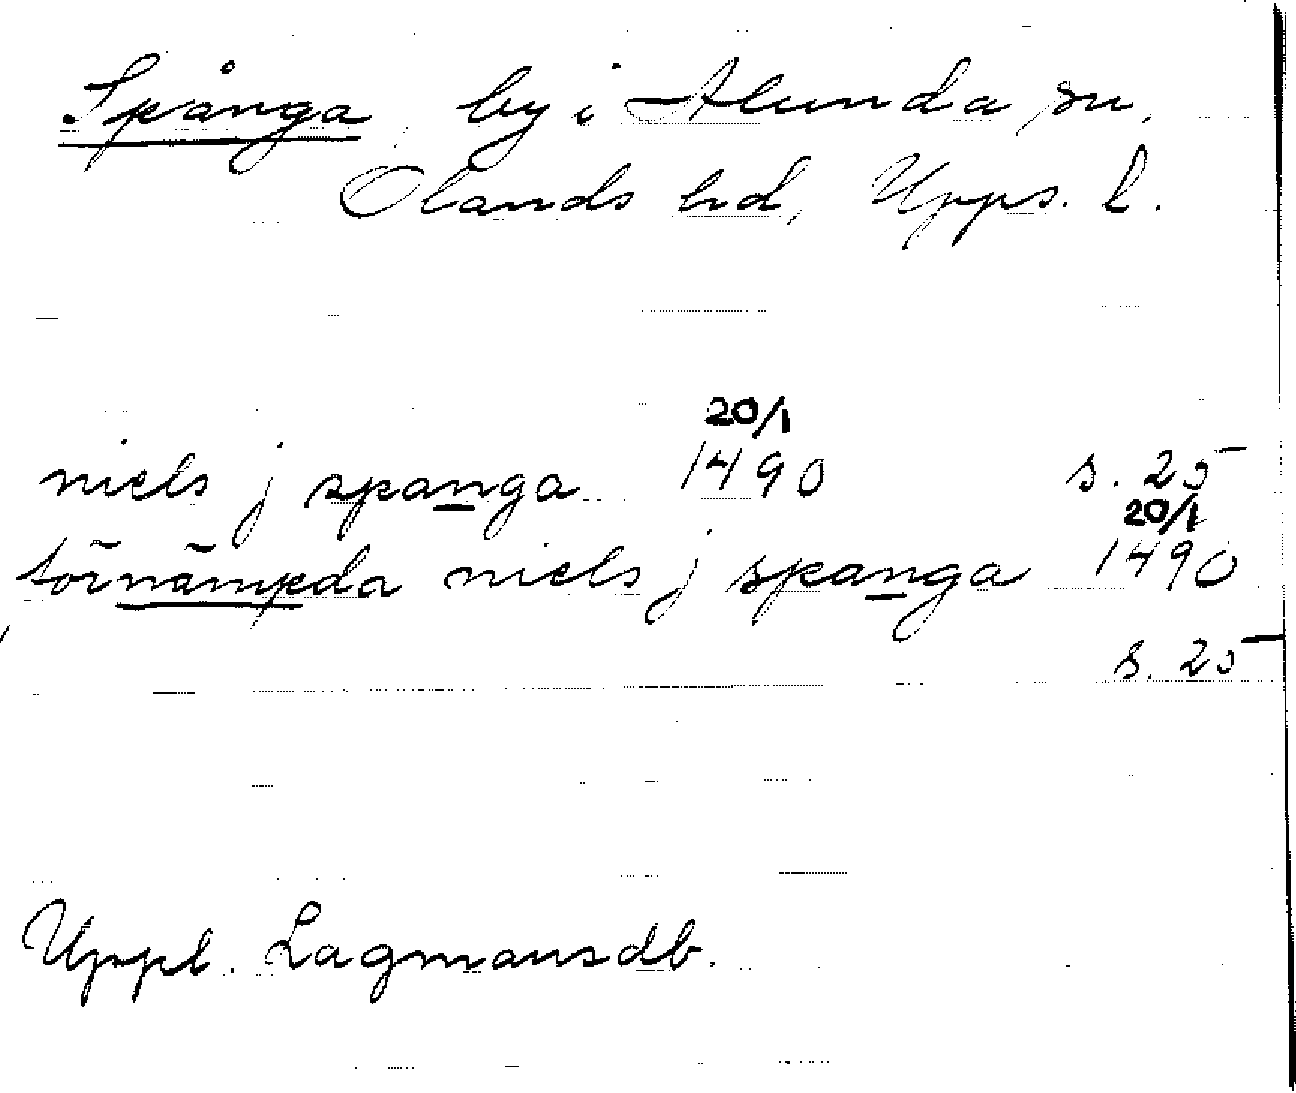 Spånga, by i Alunda sn,
Olands hd, Upps. l.
20/1
niels j spanga 1490 s. 25
20/1
förnämpda niels j spanga 1490
s. 25
Uppl. Lagmansdb.